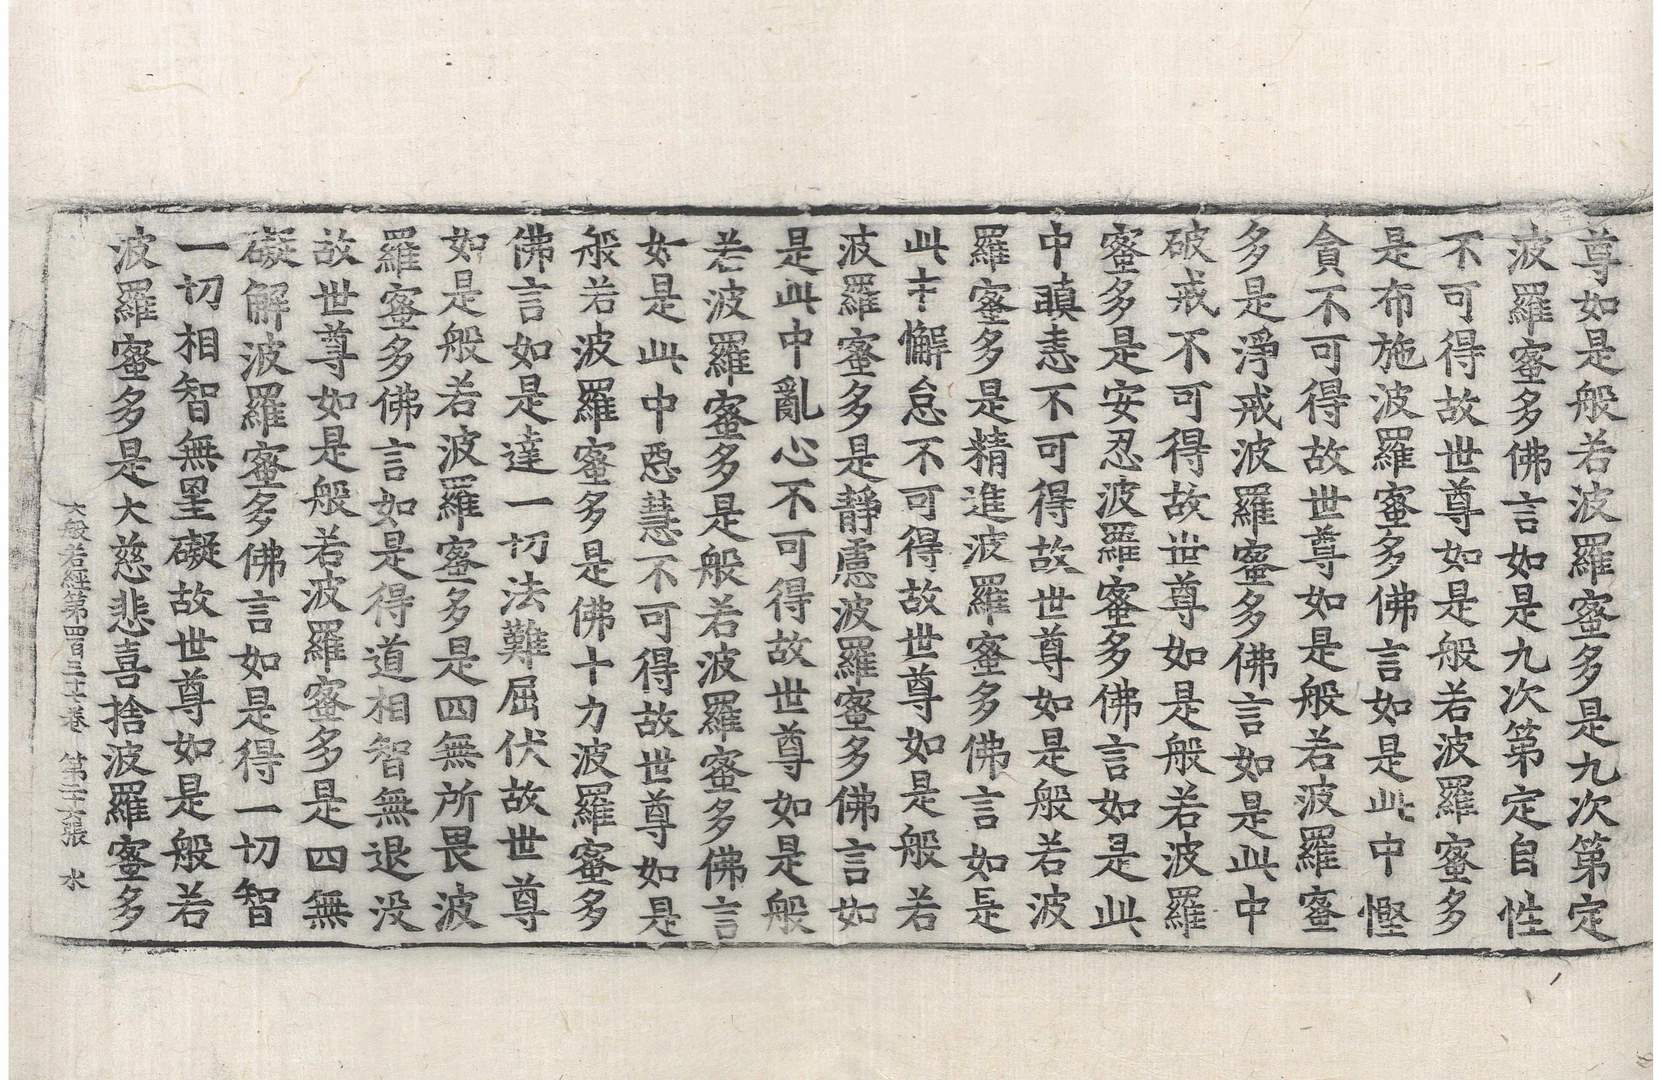 尊如是般若波羅蜜多是九次第定
波羅蜜多佛言如是九次第定自性
不可得故世尊如是般若波羅蜜多
是布施波羅蜜多佛言如是此中慳
貪不可得故世尊如是般若波羅蜜
多是淨戒波羅蜜多佛言如是此中
破戒不可得故世尊如是般若波羅
蜜多是安忍波羅蜜多佛言如是此
中瞋恚不可得故世尊如是般若波
羅蜜多是精進波羅蜜多佛言如是
此中懈怠不可得故世尊如是般若
波羅蜜多是靜慮波羅蜜多佛言如
是此中亂心不可得故世尊如是般
若波羅蜜多是般若波羅蜜多佛言
如是此中惡慧不可得故世尊如是
般若波羅蜜多是佛十力波羅蜜多
佛言如是達一切法難屈伏故世尊
如是般若波羅蜜多是四無所畏波
羅蜜多佛言如是得道相智無退没
故世尊如是般若波羅蜜多是四無
礙解波羅蜜多佛言如是得一切智
一切相智無罣礙故世尊如是般若
波羅蜜多是大慈悲喜捨波羅蜜多
大般若經第四百三十七卷 第二十六張 水